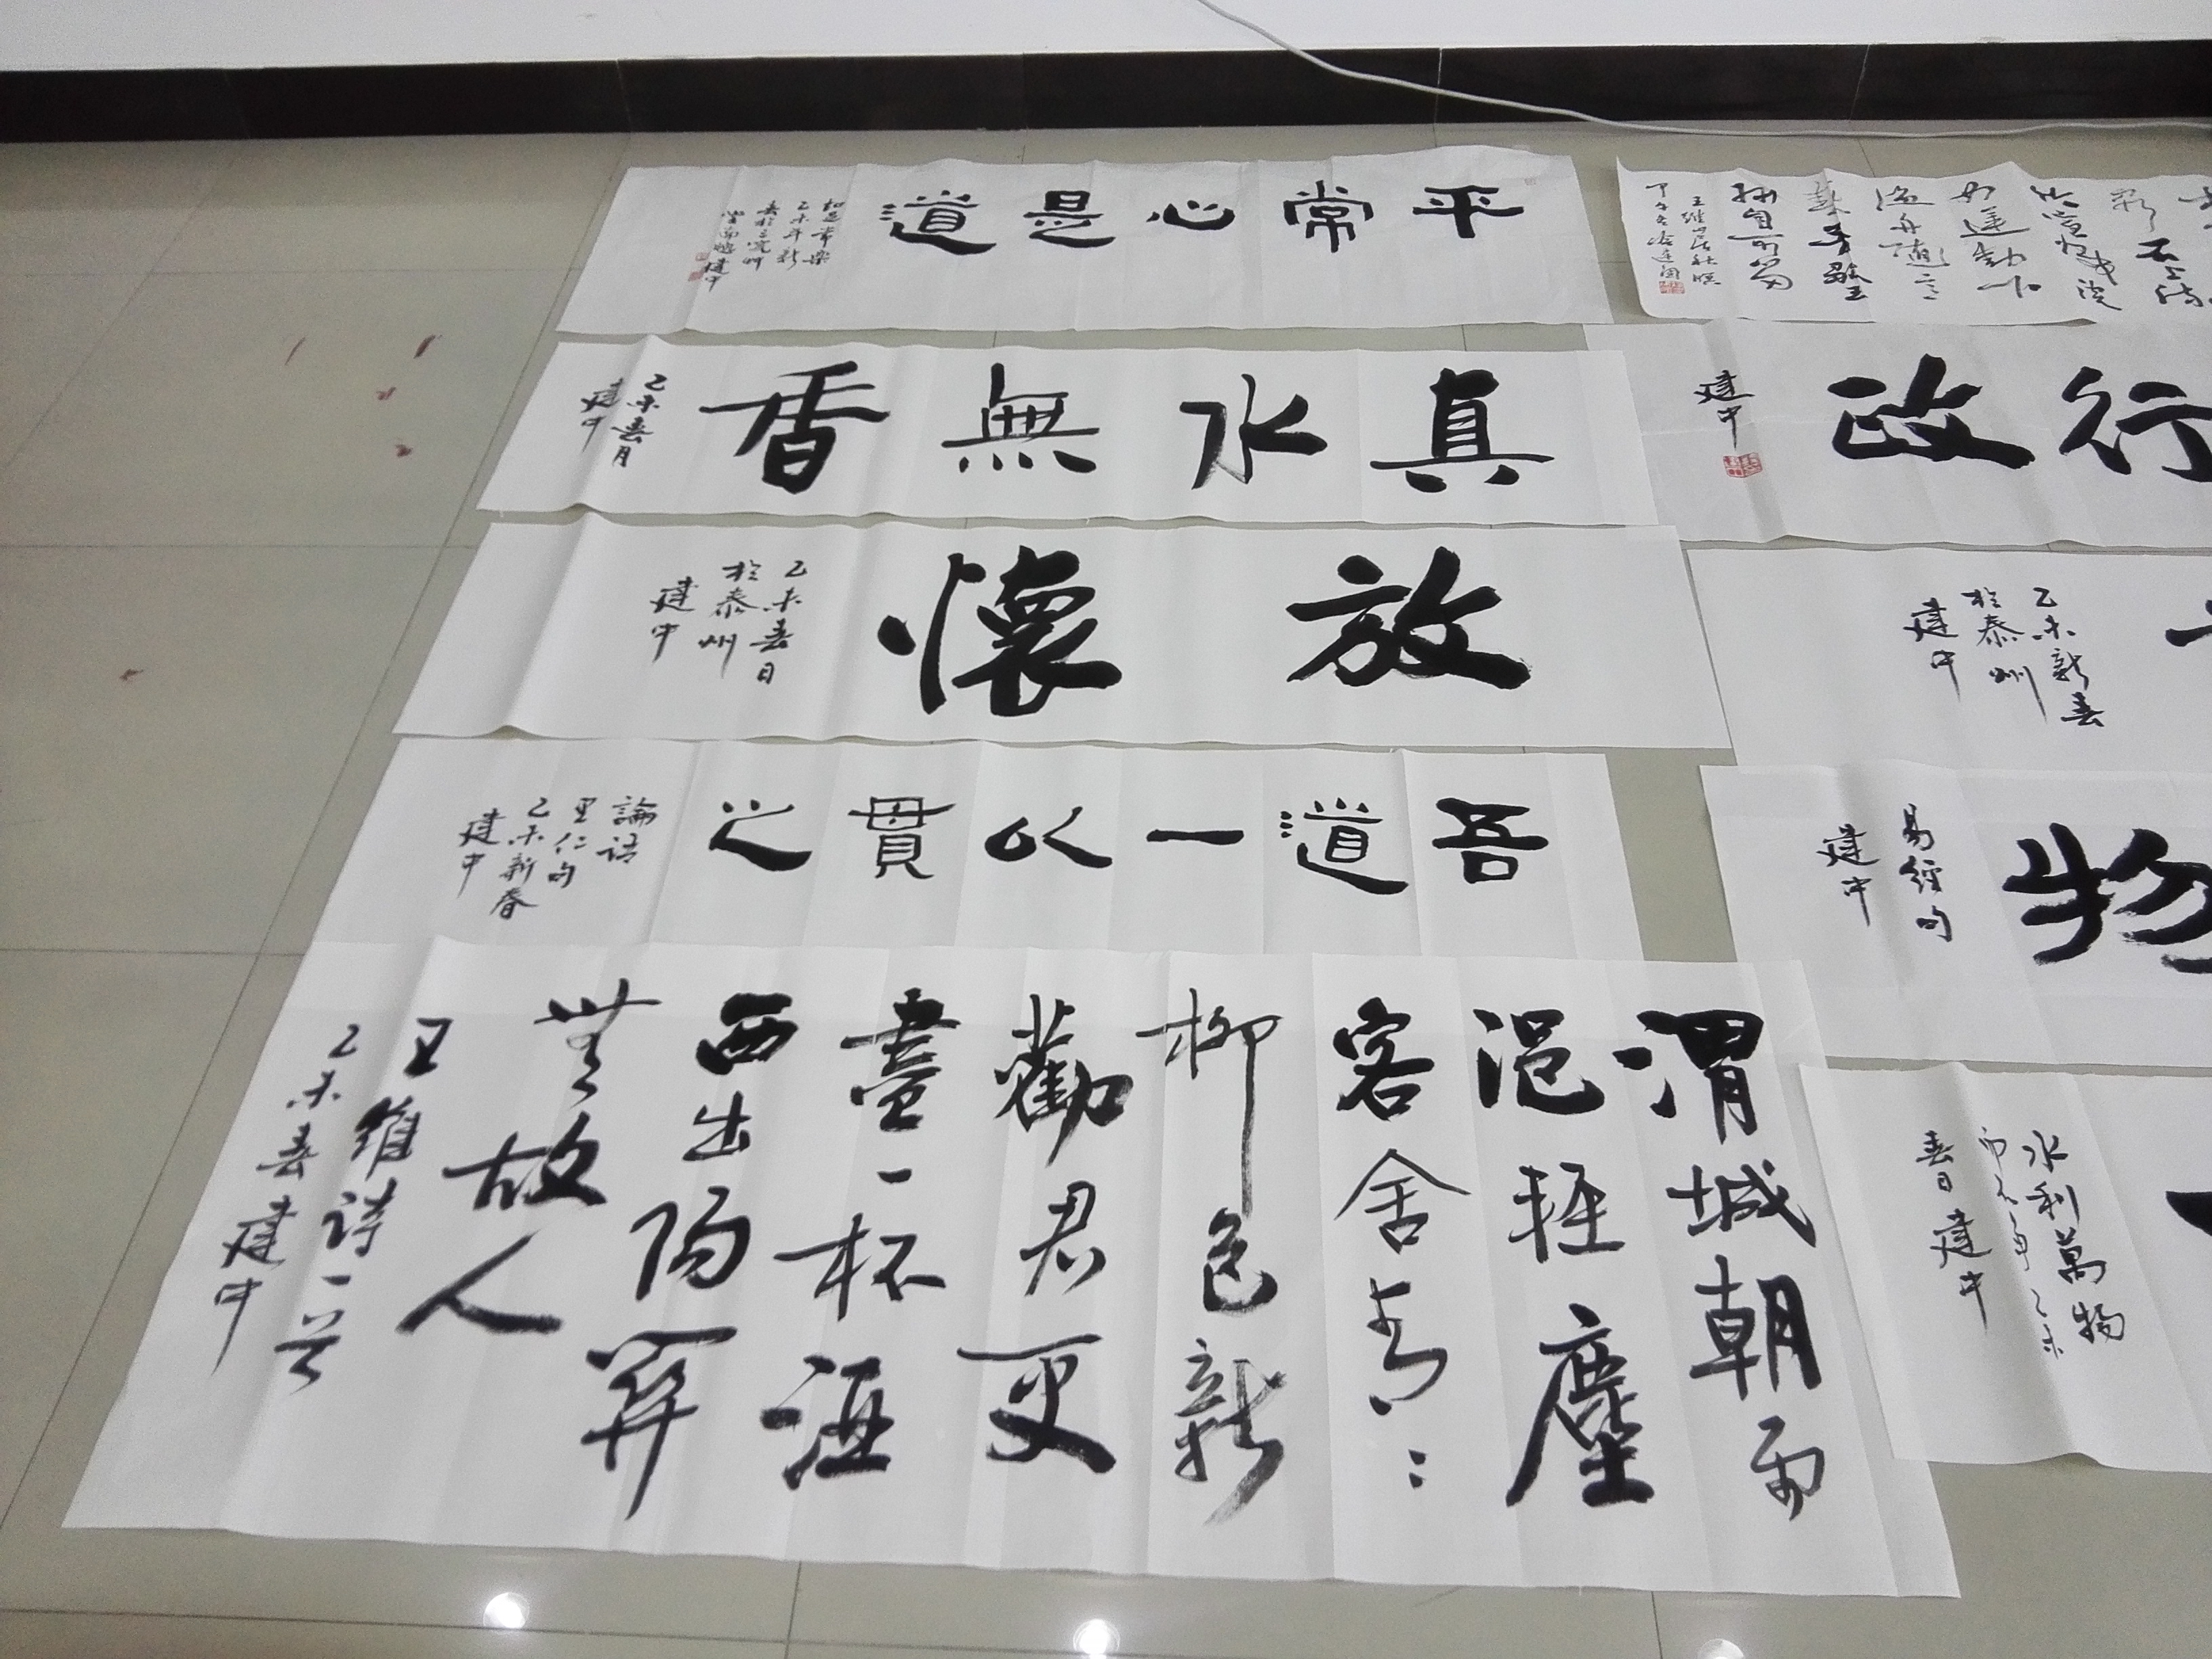 平常心是道
知足常樂
乙未年新
建中
真水無香
乙未春月
建中
放懷
乙未春日
於泰州
建中
吾道一以貫之
論語
里仁句
乙未新春
建中
渭城朝雨
浥輕塵
客舍青〻
柳色新
勸君更
盡一杯酒
西出陽關
無故人
王維詩一首
乙未春建中
王維山居秋暝
行政
建中
乙未新春
於泰州
建中
物
易經句
建中
水利萬物
而不爭乙未
春日建中